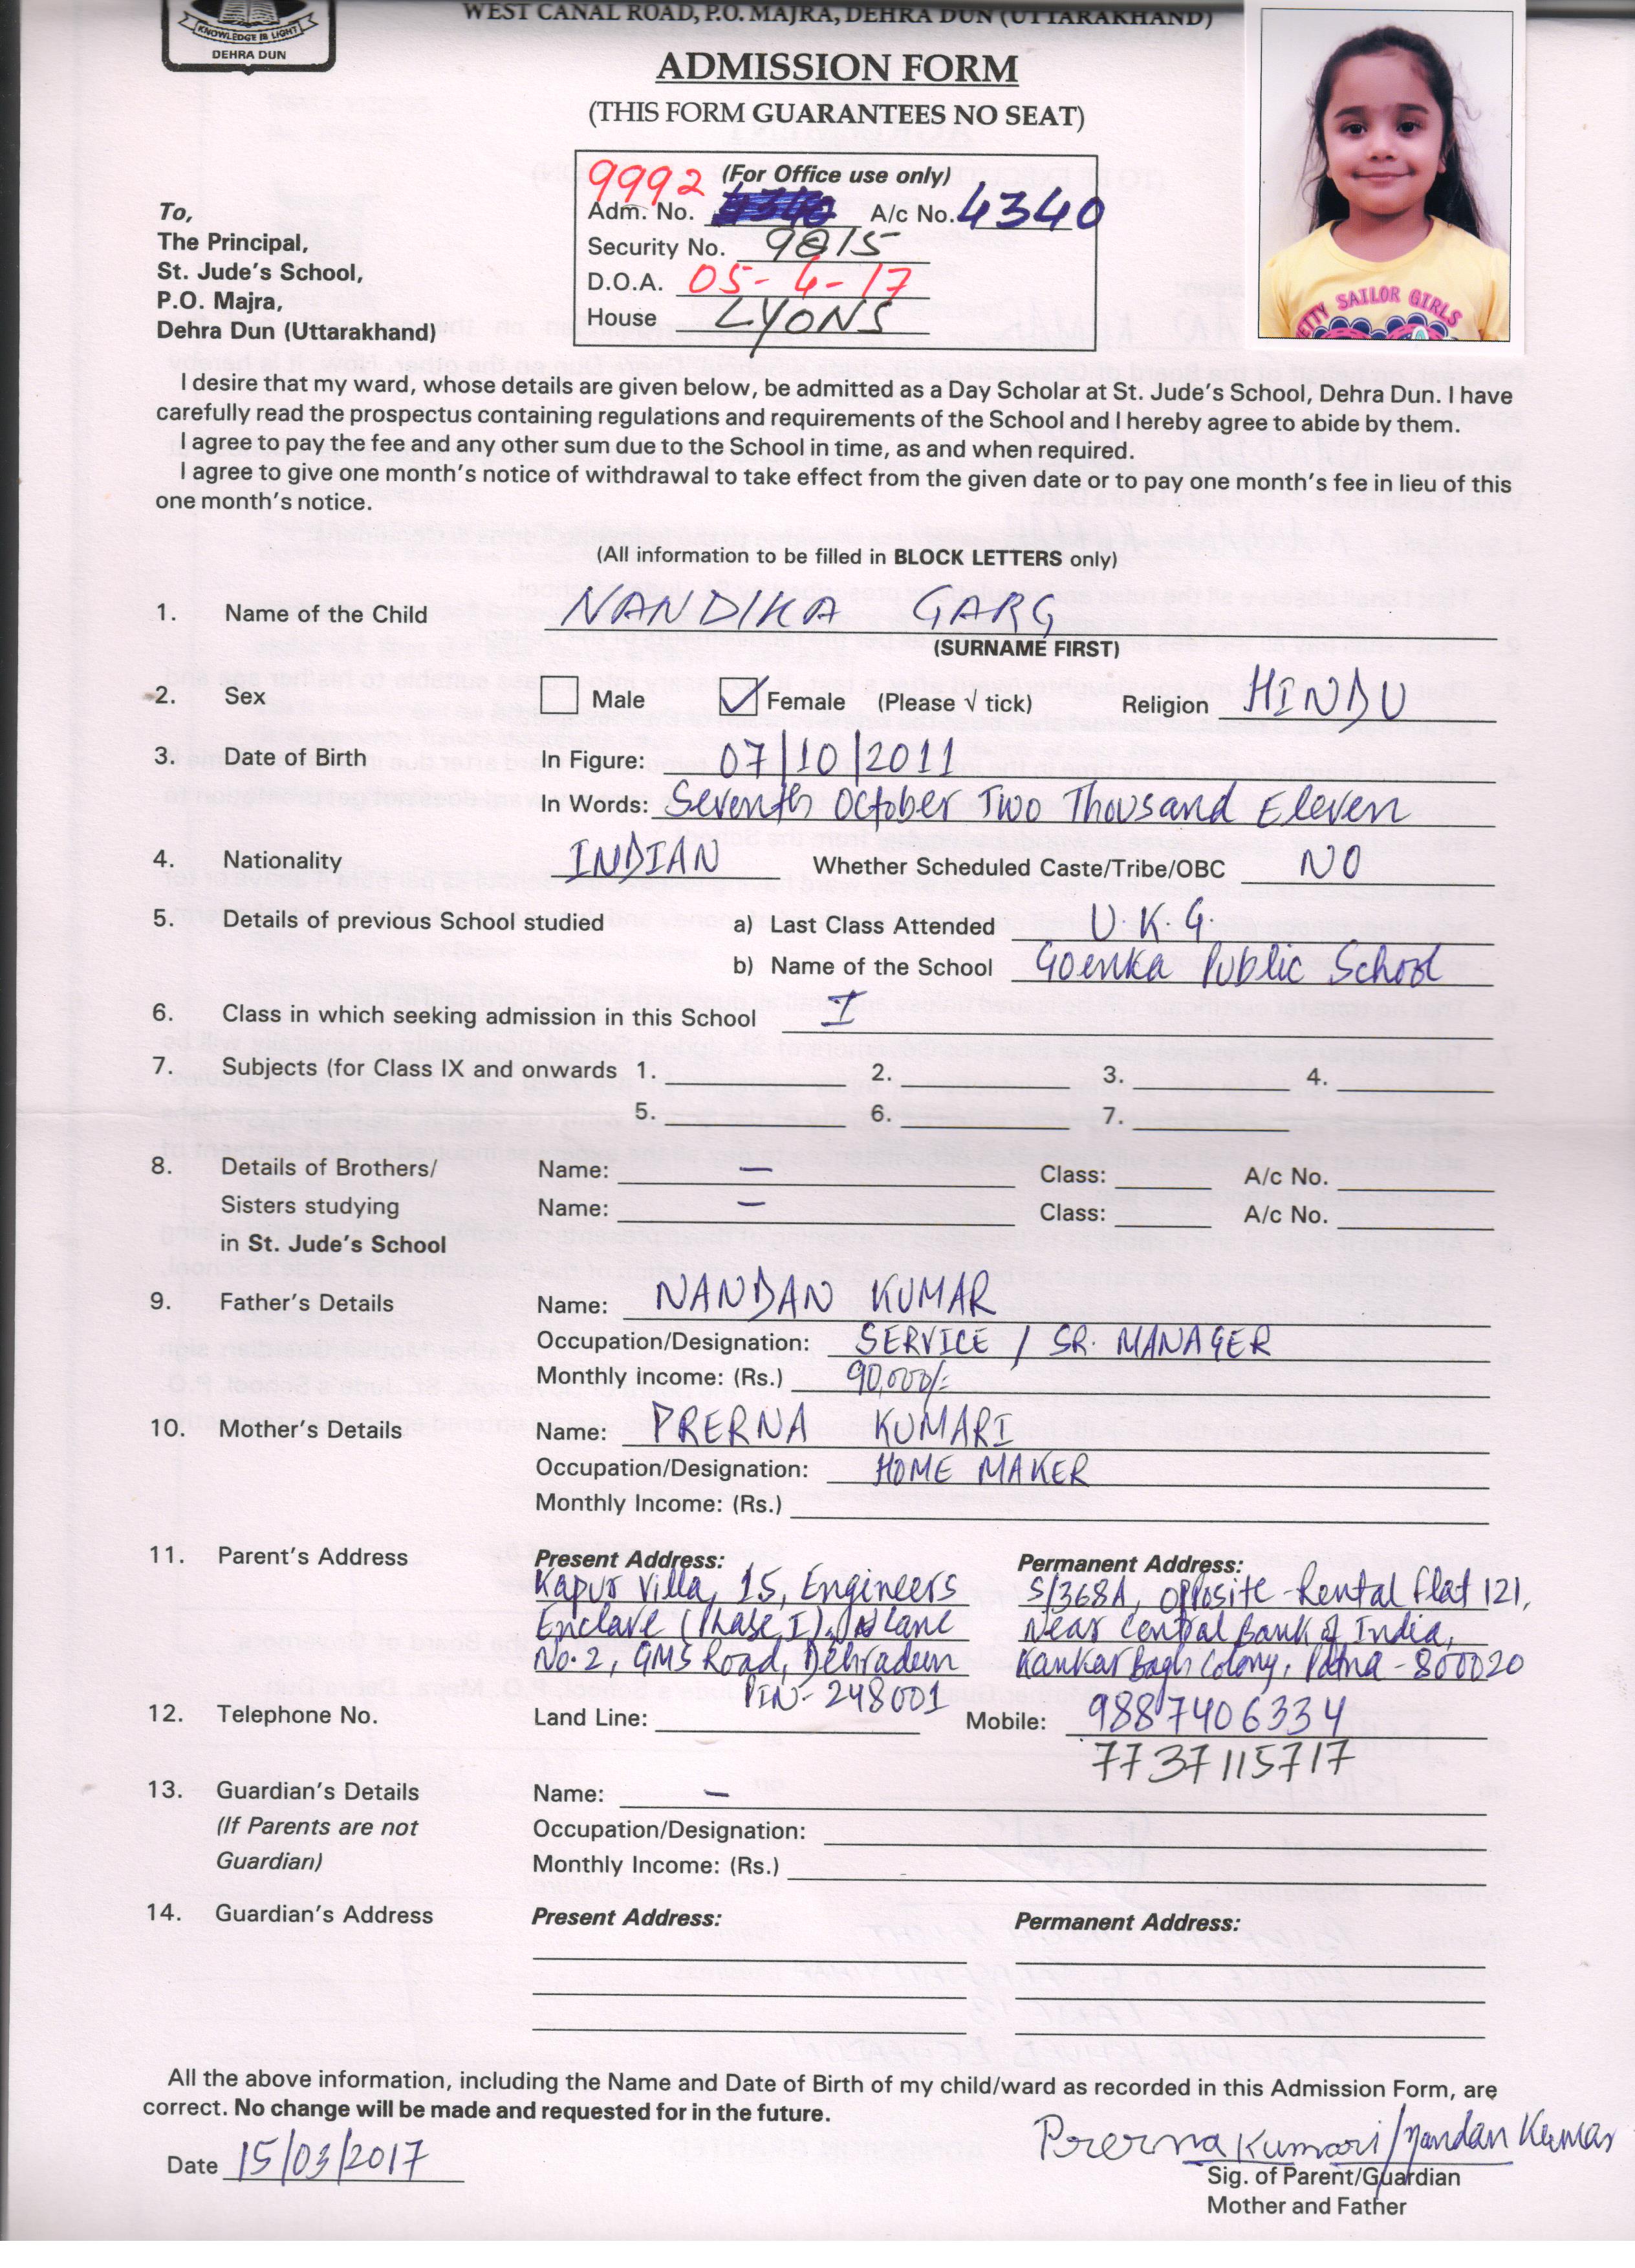 KNOWLEDGE IS LIGHT
DEHRA DUN
WEST CANAL ROAD, P.O. MAJRA, DEHRA DUN (UTTARAKHAND)
ADMISSION FORM
(THIS FORM GUARANTEES NO SEAT)
9992 (For Office use only)
Adm. No. A/c No. 4340
Security No. 9815
D.O.A. 05-4-17
House LYONS
To,
The Principal,
St. Jude's School,
P.O. Majra,
Dehra Dun (Uttarakhand)
SAILOR GIRLS
I desire that my ward, whose details are given below, be admitted as a Day Scholar at St. Jude's School, Dehra Dun. I have
carefully read the prospectus containing regulations and requirements of the School and I hereby agree to abide by them.
I agree to pay the fee and any other sum due to the School in time, as and when required.
I agree to give one month's notice of withdrawal to take effect from the given date or to pay one month's fee in lieu of this
one month's notice.
(All information to be filled in BLOCK LETTERS only)
1. Name of the Child NANDIKA GARG
(SURNAME FIRST)
2. Sex Male Female (Please √ tick) Religion HINDU
3. Date of Birth In Figure: 07/10/2011
In Words: Seventh October Two Thousand Eleven
4. Nationality INDIAN Whether Scheduled Caste/Tribe/OBC NO
5. Details of previous School studied a) Last Class Attended U.K.G.
b) Name of the School Goenka Public School
6. Class in which seeking admission in this School I
7. Subjects (for Class IX and onwards 1. 2. 3. 4.
5. 6. 7.
8. Details of Brothers/ Name: — Class: A/c No.
Sisters studying Name: — Class: A/c No.
in St. Jude's School
9. Father's Details Name: NANDAN KUMAR
Occupation/Designation: SERVICE / SR. MANAGER
Monthly income: (Rs.) 90,000/-
10. Mother's Details Name: PRERNA KUMARI
Occupation/Designation: HOME MAKER
Monthly Income: (Rs.)
11. Parent's Address Present Address: Permanent Address:
Kapur Villa, 15, Engineers S/368A, opposite Rental Flat 121,
Enclave (Phase I), Lane Near Central Bank of India,
No. 2, GMS Road, Dehradun Kankar Bagh Colony, Patna - 800020
PIN - 248001
12. Telephone No. Land Line: Mobile: 9887406334
7737115717
13. Guardian's Details Name: —
(If Parents are not Occupation/Designation:
Guardian) Monthly Income: (Rs.)
14. Guardian's Address Present Address: Permanent Address:
All the above information, including the Name and Date of Birth of my child/ward as recorded in this Admission Form, are
correct. No change will be made and requested for in the future.
Prerna Kumari/Nandan Kumar
Date 15/03/2017
Sig. of Parent/Guardian
Mother and Father